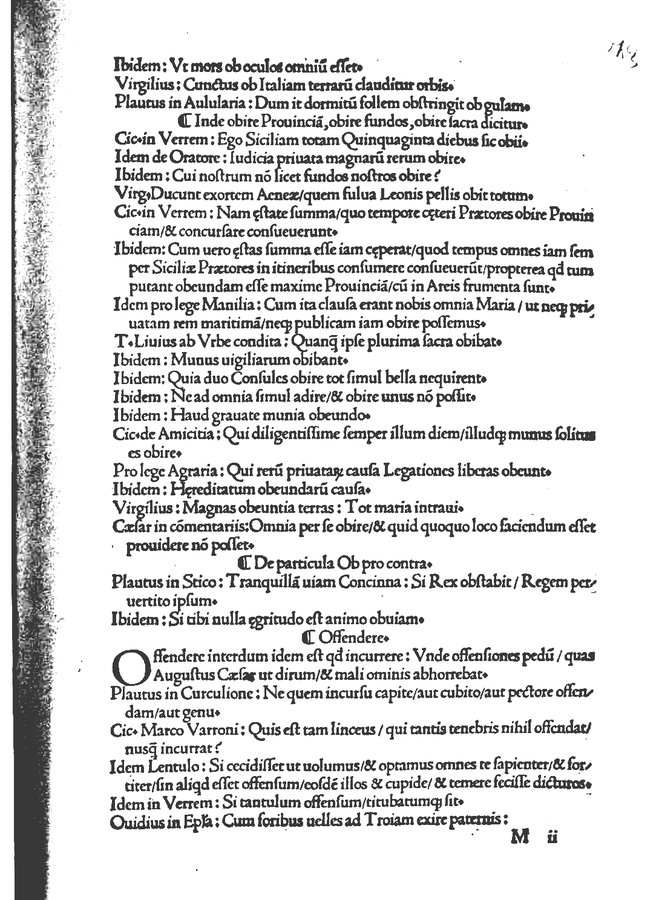 Ibidem : Vt mors ob oculos omniū esset.
Virgilius : Cunctus ob Italiam terrarū clauditur orbis.
Plautus in Aulularia : Dum it dormitū follem obstringit ob gulam.
¶ Inde obire Prouinciā, obire fundos, obire sacra dicitur.
Cic. in Verrem : Ego Siciliam totam Quinquaginta diebus sic obii.
Idem de Oratore : Iudicia priuata magnarū rerum obire.
Ibidem : Cui nostrum nō licet fundos nostros obire ?
Virg. Ducunt exortem Aeneæ/quem fulua Leonis pellis obit totum.
Cic. in Verrem : Nam ęstate summa/quo tempore cęteri Prætores obire Prouin
ciam/& concursare consueuerunt.
Ibidem: Cum uero ęstas summa esse iam cęperat/quod tempus omnes iam sem
per Siciliæ Prætores in itineribus consumere consueuerūt/propterea qd tum
putant obeundam esse maxime Prouinciā/cū in Areis frumenta sunt.
Idem pro lege Manilia : Cum ita clausa erant nobis omnia Maria / ut neqꝫ pri/
uatam rem maritimā/neqꝫ publicam iam obire possemus.
T. Liuius ab Vrbe condita : Quanq̄ ipse plurima sacra obibat.
Ibidem : Munus uigiliarum obibant.
Ibidem: Quia duo Consules obire tot simul bella nequirent.
Ibidem : Ne ad omnia simul adire/& obire unus nō possit.
Ibidem : Haud grauate munia obeundo.
Cic. de Amicitia : Qui diligentissime semper illum diem/illudqꝫ munus solitus
es obire.
Pro lege Agraria : Qui rerū priuataꝝ causa Legationes liberas obeunt.
Ibidem : Hęreditatum obeundarū causa.
Virgilius : Magnas obeuntia terras : Tot maria intraui.
Cæsar in cōmentariis:Omnia per se obire/& quid quoquo loco faciendum esset
prouidere nō posset.
¶ De particula Ob pro contra.
Plautus in Stico : Tranquillā uiam Concinna : Si Rex obstabit / Regem per/
uertito ipsum.
Ibidem : Si tibi nulla ęgritudo est animo obuiam.
¶ Offendere.
Offendere interdum idem est qd incurrere : Vnde offensiones pedū / quas
Augustus Cæsar ut dirum/& mali ominis abhorrebat.
Plautus in Curculione : Ne quem incursu capite/aut cubito/aut pectore offen/
dam/aut genu.
Cic. Marco Varroni : Quis est tam linceus / qui tantis tenebris nihil offendat/
nusq̄ incurrat ?
Idem Lentulo : Si cecidisset ut uolumus/& optamus omnes te sapienter/& for/
titer/sin aliqd esset offensum/eosdē illos & cupide/ & temere fecisse dicturos.
Idem in Verrem : Si tantulum offensum/titubatumqꝫ sit.
Ouidius in Epl̄a : Cum foribus uelles ad Troiam exire paternis :
M ii